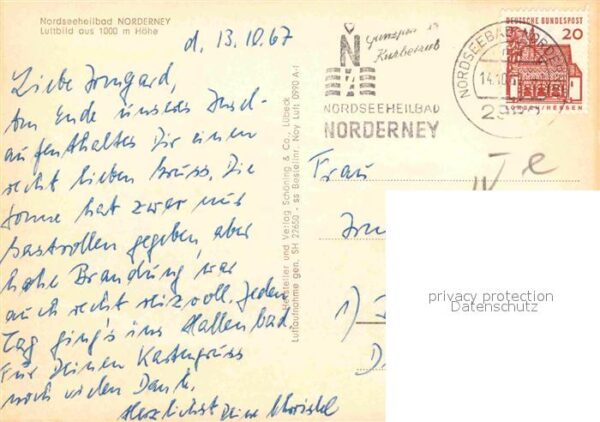 Nordseeheilbad NORDERNEY
Luftbild aus 1000 m Höhe
d. 13.10.67
Liebe Irmgard,
Am Ende unseres Insel-
aufenthaltes Dir einen
recht lieben Gruss. Die
Sonne hat zwar nur
Gastrollen gegeben, aber
hohe Brandung war
auch recht reizvoll. Jeden
Tag ging's ins Hallenbad.
Für Deinen Kartengruss
noch vielen Dank.
Herzlichst Deine
Hersteller und Verlag Schöning & Co., Lübeck
Luftaufnahme gen. SH 22650 - ss Bestellnr. Noy Luft 0990 A-1
N
Kurbetrieb
NORDSEEHEILBAD
NORDERNEY
NORDSEEBAD NORDERNEY
14.10.
DEUTSCHE BUNDESPOST
20
LORSCH/HESSEN
Frau
1)
privacy protection
Datenschutz